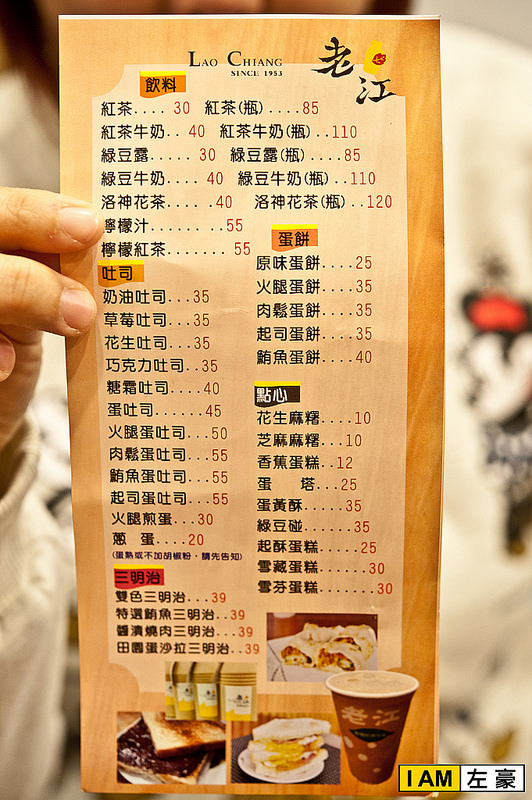 LAO CHIANG
SINCE 1953
老江
飲料
紅茶.... 30 紅茶(瓶)....85
紅茶牛奶.. 40 紅茶牛奶(瓶)..110
綠豆露..... 30 綠豆露(瓶)....85
綠豆牛奶.... 40 綠豆牛奶(瓶)..110
洛神花茶.....40 洛神花茶(瓶)..120
檸檬汁.......55
檸檬紅茶....... 55
吐司
奶油吐司...35
草莓吐司...35
花生吐司...35
巧克力吐司..35
糖霜吐司....40
蛋吐司......45
火腿蛋吐司...50
肉鬆蛋吐司...55
鮪魚蛋吐司...55
起司蛋吐司...55
火腿煎蛋...30
蔥 蛋....20
(蛋熟或不加胡椒粉，請先告知)
三明治
雙色三明治...39
特選鮪魚三明治..39
醬漬燒肉三明治...39
田園蛋沙拉三明治..39
蛋餅
原味蛋餅....25
火腿蛋餅....35
肉鬆蛋餅....35
起司蛋餅....35
鮪魚蛋餅....40
點心
花生麻糬....10
芝麻麻糬...10
香蕉蛋糕..12
蛋 塔...25
蛋黃酥.....35
綠豆碰......35
起酥蛋糕.....25
雪藏蛋糕......30
雪芬蛋糕.......30
老江
I AM 左豪